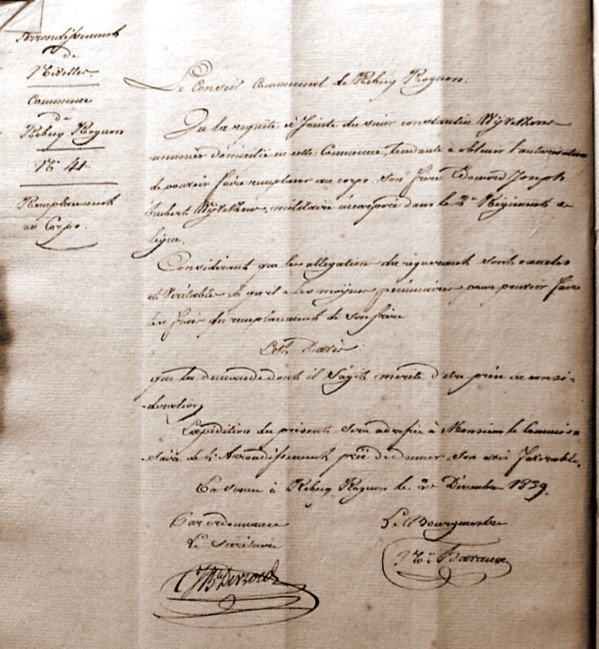 Arrondissement
de
Nivelles.
Commune
de
Rebecq Rognon
N° 41
Remplacement
au Corps.
Le Conseil Communal de Rebecq Rognon.
Vu la requête ci jointe du sieur constantin
meunier domicilié en cette Commune, tendante à obtenir l'autorisation
de pouvoir faire remplacer au corps son frère Edouard Joseph
hubert militaire incorporé dans le 2e Régiment de
ligne.
Considérant que les allegation du requerant sont exactes
et véritable et qu'il a les moyens pécuniaires pour pouvoir faire
les frais du remplacement de son frère
Est d'avis
que la demande dont il s'agit merite d'etre prise en consi-
deration
Expédition du présent sera adressée à Monsieur le Commis-
saire de l'Arrondissement prié de donner son avis favorable.
En séance à Rebecq Rognon le 2 Décembre 1839.
Par ordonnance
Le Secrétaire
Le Bourgmestre